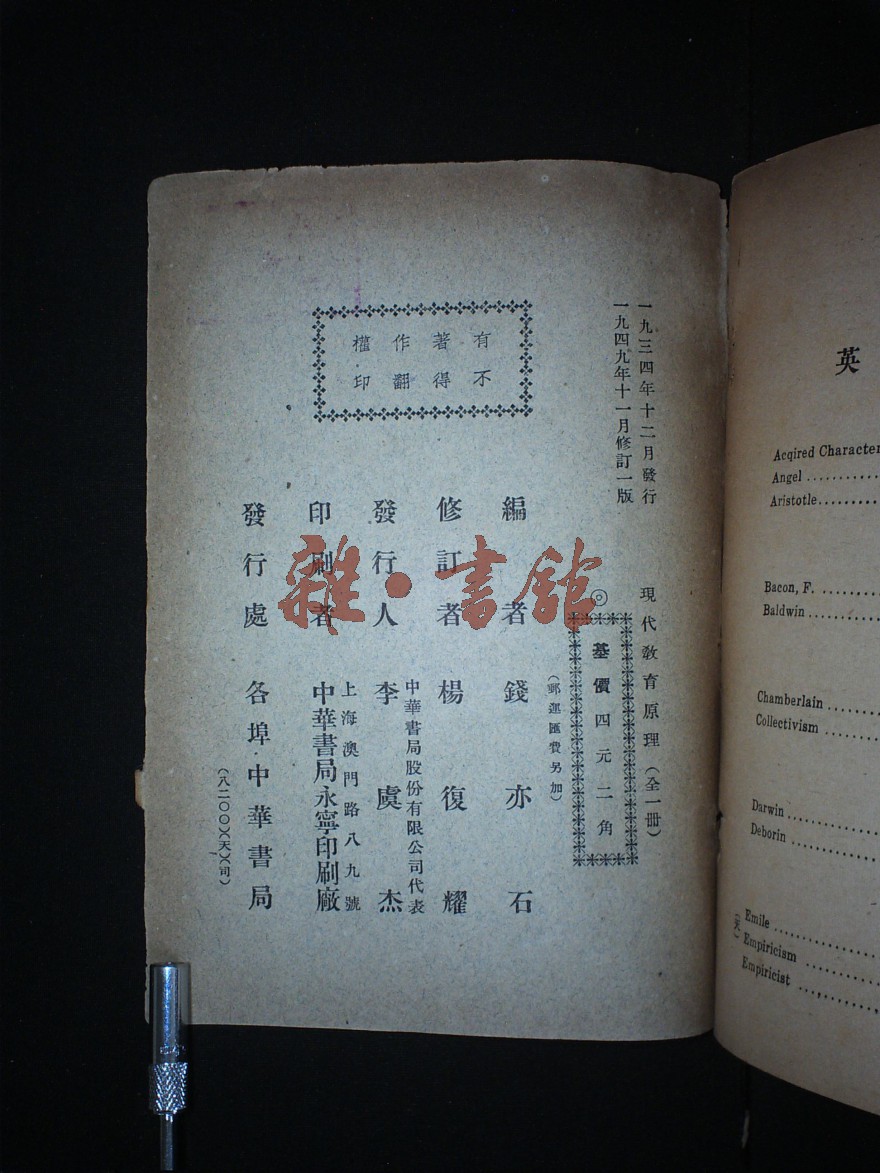 一九三四年十二月發行
一九四九年十一月修訂一版
有著作權
不得翻印
現代教育原理（全一冊）
◎基價四元二角
（郵運匯費另加）
編者錢亦石
修訂者楊復耀
發行人李虞杰
中華書局股份有限公司代表
印刷者中華書局永寧印刷廠
上海澳門路八九號
發行處各埠·中華書局
（八二〇〇）（天）（司）
雜·書館
英
Acqired Character
Angel
Aristotle
Bacon, F.
Baldwin
Chamberlain
Collectivism
Darwin
Deborin
Emile
Empiricism
Empiricist